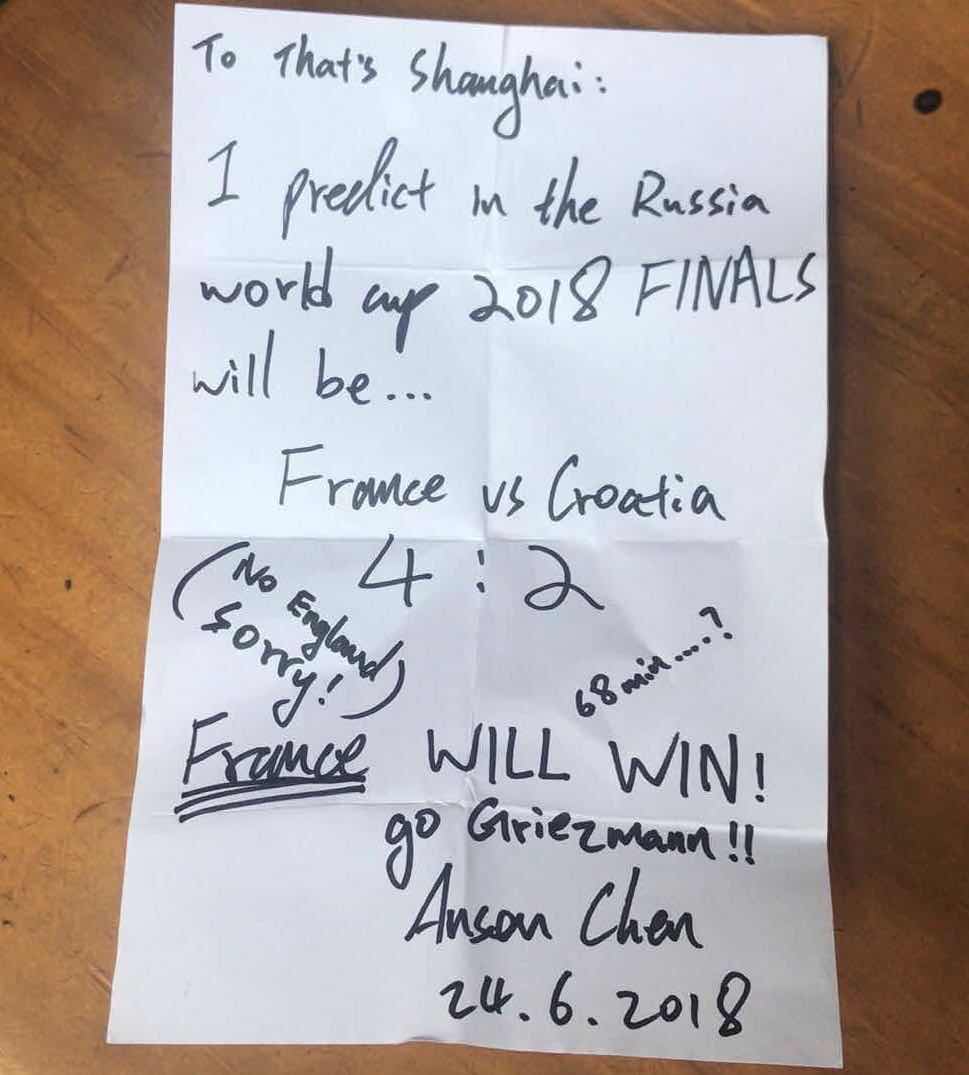 To That's Shanghai:
I predict in the Russia
world cup 2018 FINALS
will be...
France vs Croatia
4 : 2
(No England
Sorry!)
68 min....?
France WILL WIN!
go Griezmann!!
Anson Chen
24.6.2018